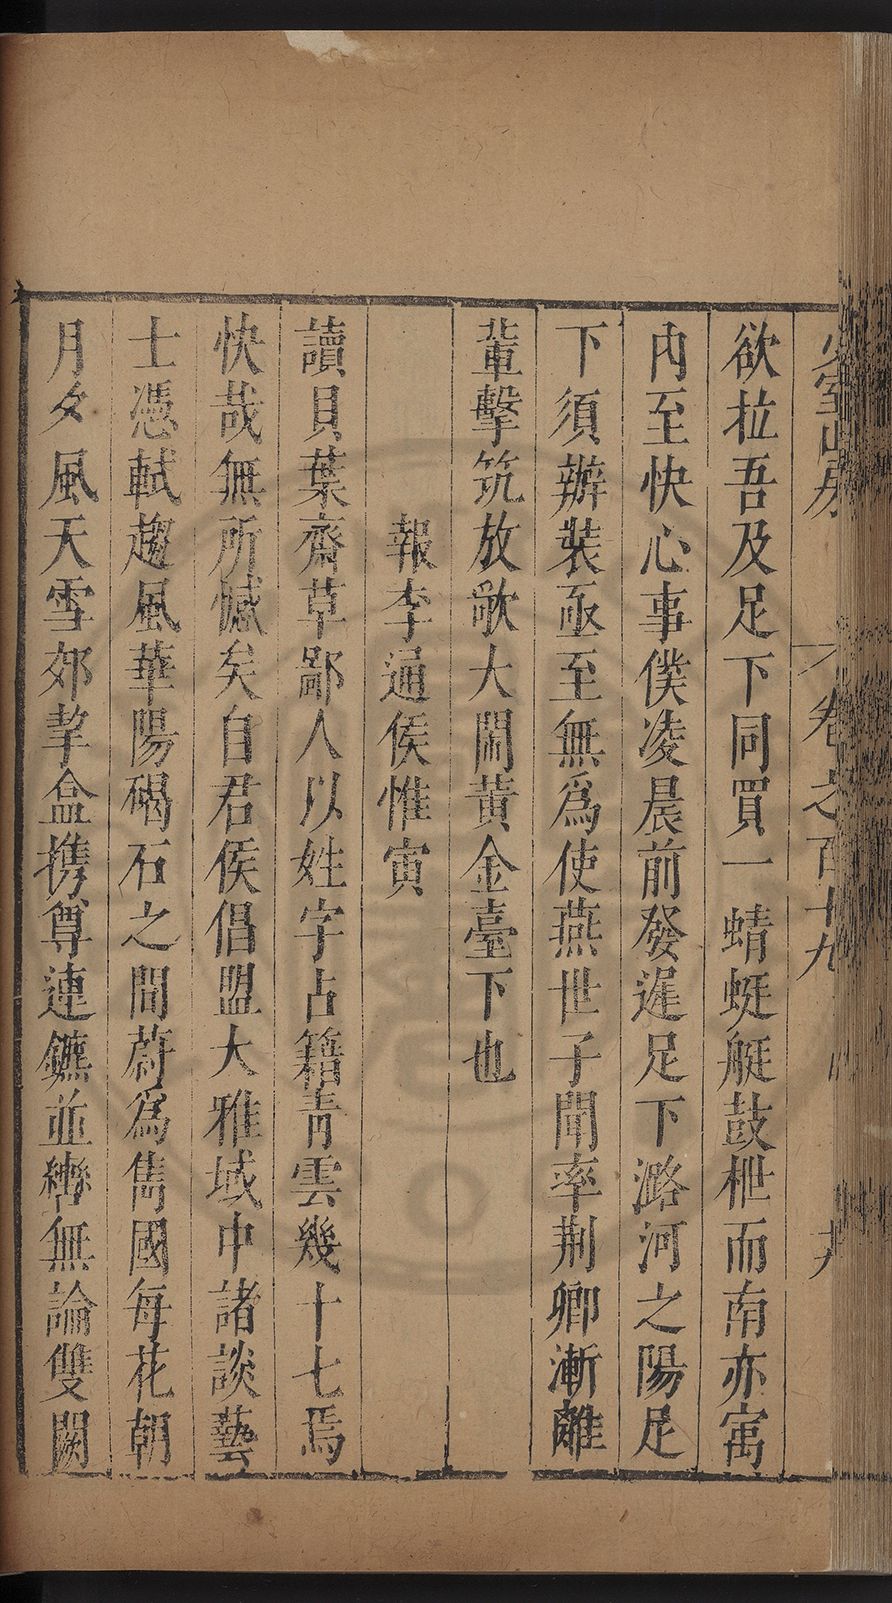 少室山房
卷之百十九
十九
欲拉吾及足下同買一蜻蜓艇鼓枻而南亦寓
內至快心事僕凌晨前發遲足下潞河之陽足
下須辦裝亟至無爲使燕世子聞率荆卿漸離
輩擊筑放歌大閙黄金臺下也
報李通侯惟寅
讀貝葉齋草鄙人以姓字占籍青雲幾十七焉
快哉無所憾矣自君侯倡盟大雅域中諸談藝
士憑軾趨風華陽碣石之間蔚爲雋國每花朝
月夕風天雪郊挈盒携尊連鑣並轡無論雙闕